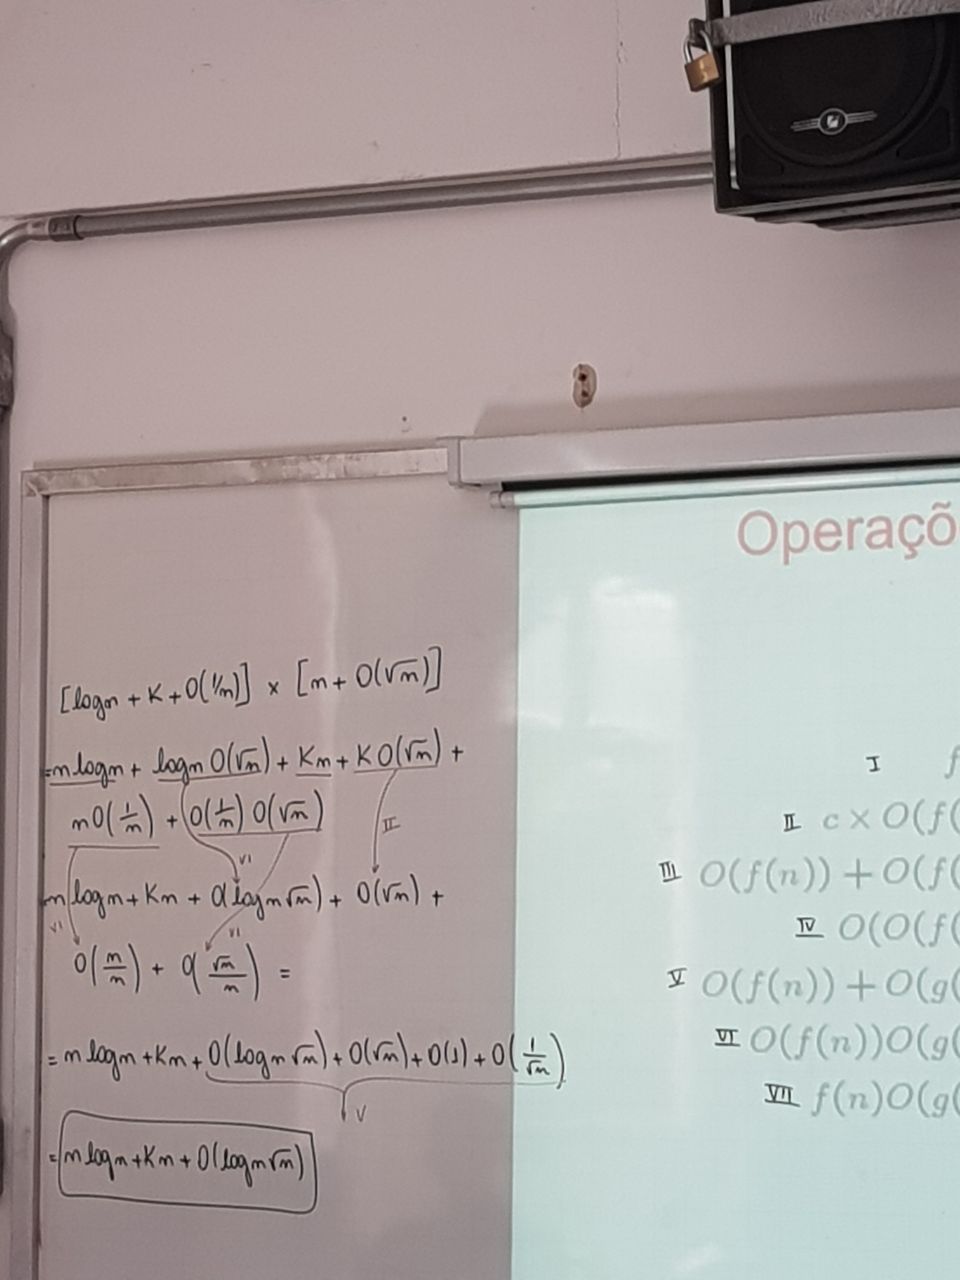 [log n + K + O(1/n)] × [n + O(√n)]
= n log n + log n O(√n) + Kn + K O(√n) +
n O(1/n) + O(1/n) O(√n)
II
VI
n log n + Kn + O(log n √n) + O(√n) +
VI
VI
O(n/n) + O(√n/n) =
= n log n + Kn + O(log n √n) + O(√n) + O(1) + O(1/√n)
V
= n log n + Kn + O(log n √n)
Operaçõ
I f
II c × O(f(
III O(f(n)) + O(f(
IV O(O(f(
V O(f(n)) + O(g(
VI O(f(n))O(g(
VII f(n)O(g(